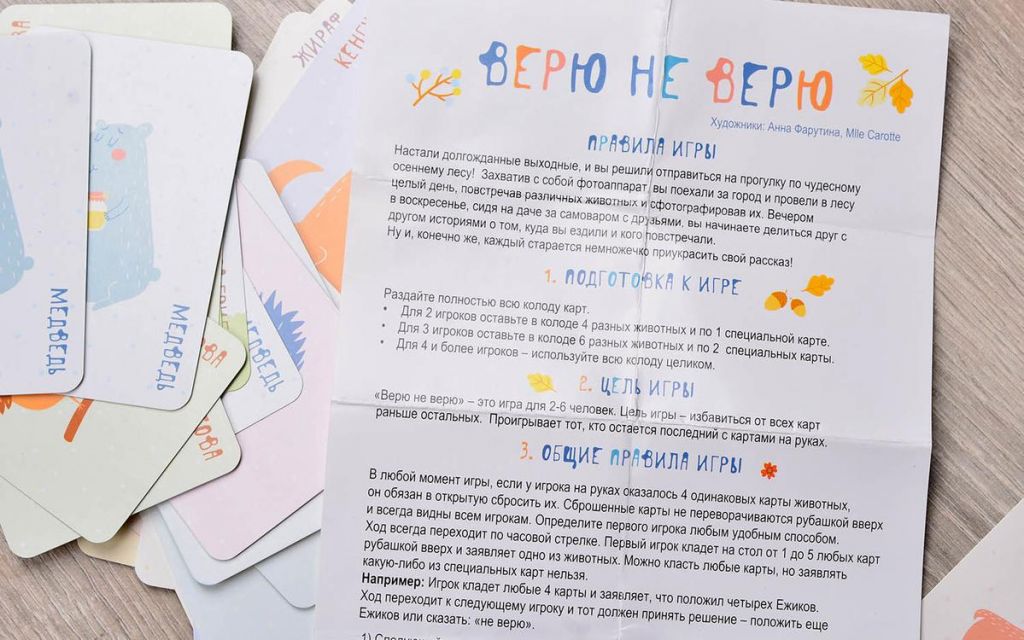 ЖИРАФ
ВЕРЮ НЕ ВЕРЮ
Художники: Анна Фарутина, Mile Carotte
ПРАВИЛА ИГРЫ
Настали долгожданные выходные, и вы решили отправиться на прогулку по чудесному
осеннему лесу! Захватив с собой фотоаппарат, вы поехали за город и провели в лесу
целый день, повстречав различных животных и сфотографировав их. Вечером
в воскресенье, сидя на даче за самоваром с друзьями, вы начинаете делиться друг с
другом историями о том, куда вы ездили и кого повстречали.
Ну и, конечно же, каждый старается немножечко приукрасить свой рассказ!
1. ПОДГОТОВКА К ИГРЕ
Раздайте полностью всю колоду карт.
• Для 2 игроков оставьте в колоде 4 разных животных и по 1 специальной карте.
• Для 3 игроков оставьте в колоде 6 разных животных и по 2 специальных карты.
• Для 4 и более игроков – используйте всю колоду целиком.
2. ЦЕЛЬ ИГРЫ
«Верю не верю» – это игра для 2-6 человек. Цель игры – избавиться от всех карт
раньше остальных. Проигрывает тот, кто остается последний с картами на руках.
3. ОБЩИЕ ПРАВИЛА ИГРЫ
В любой момент игры, если у игрока на руках оказалось 4 одинаковых карты животных,
он обязан в открытую сбросить их. Сброшенные карты не переворачиваются рубашкой вверх
и всегда видны всем игрокам. Определите первого игрока любым удобным способом.
Ход всегда переходит по часовой стрелке. Первый игрок кладет на стол от 1 до 5 любых карт
рубашкой вверх и заявляет одно из животных. Можно класть любые карты, но заявлять
какую-либо из специальных карт нельзя.
Например: Игрок кладет любые 4 карты и заявляет, что положил четырех Ежиков.
Ход переходит к следующему игроку и тот должен принять решение – положить еще
Ежиков или сказать: «не верю».
МЕДВЕДЬ
МЕДВЕДЬ
МЕДВЕДЬ